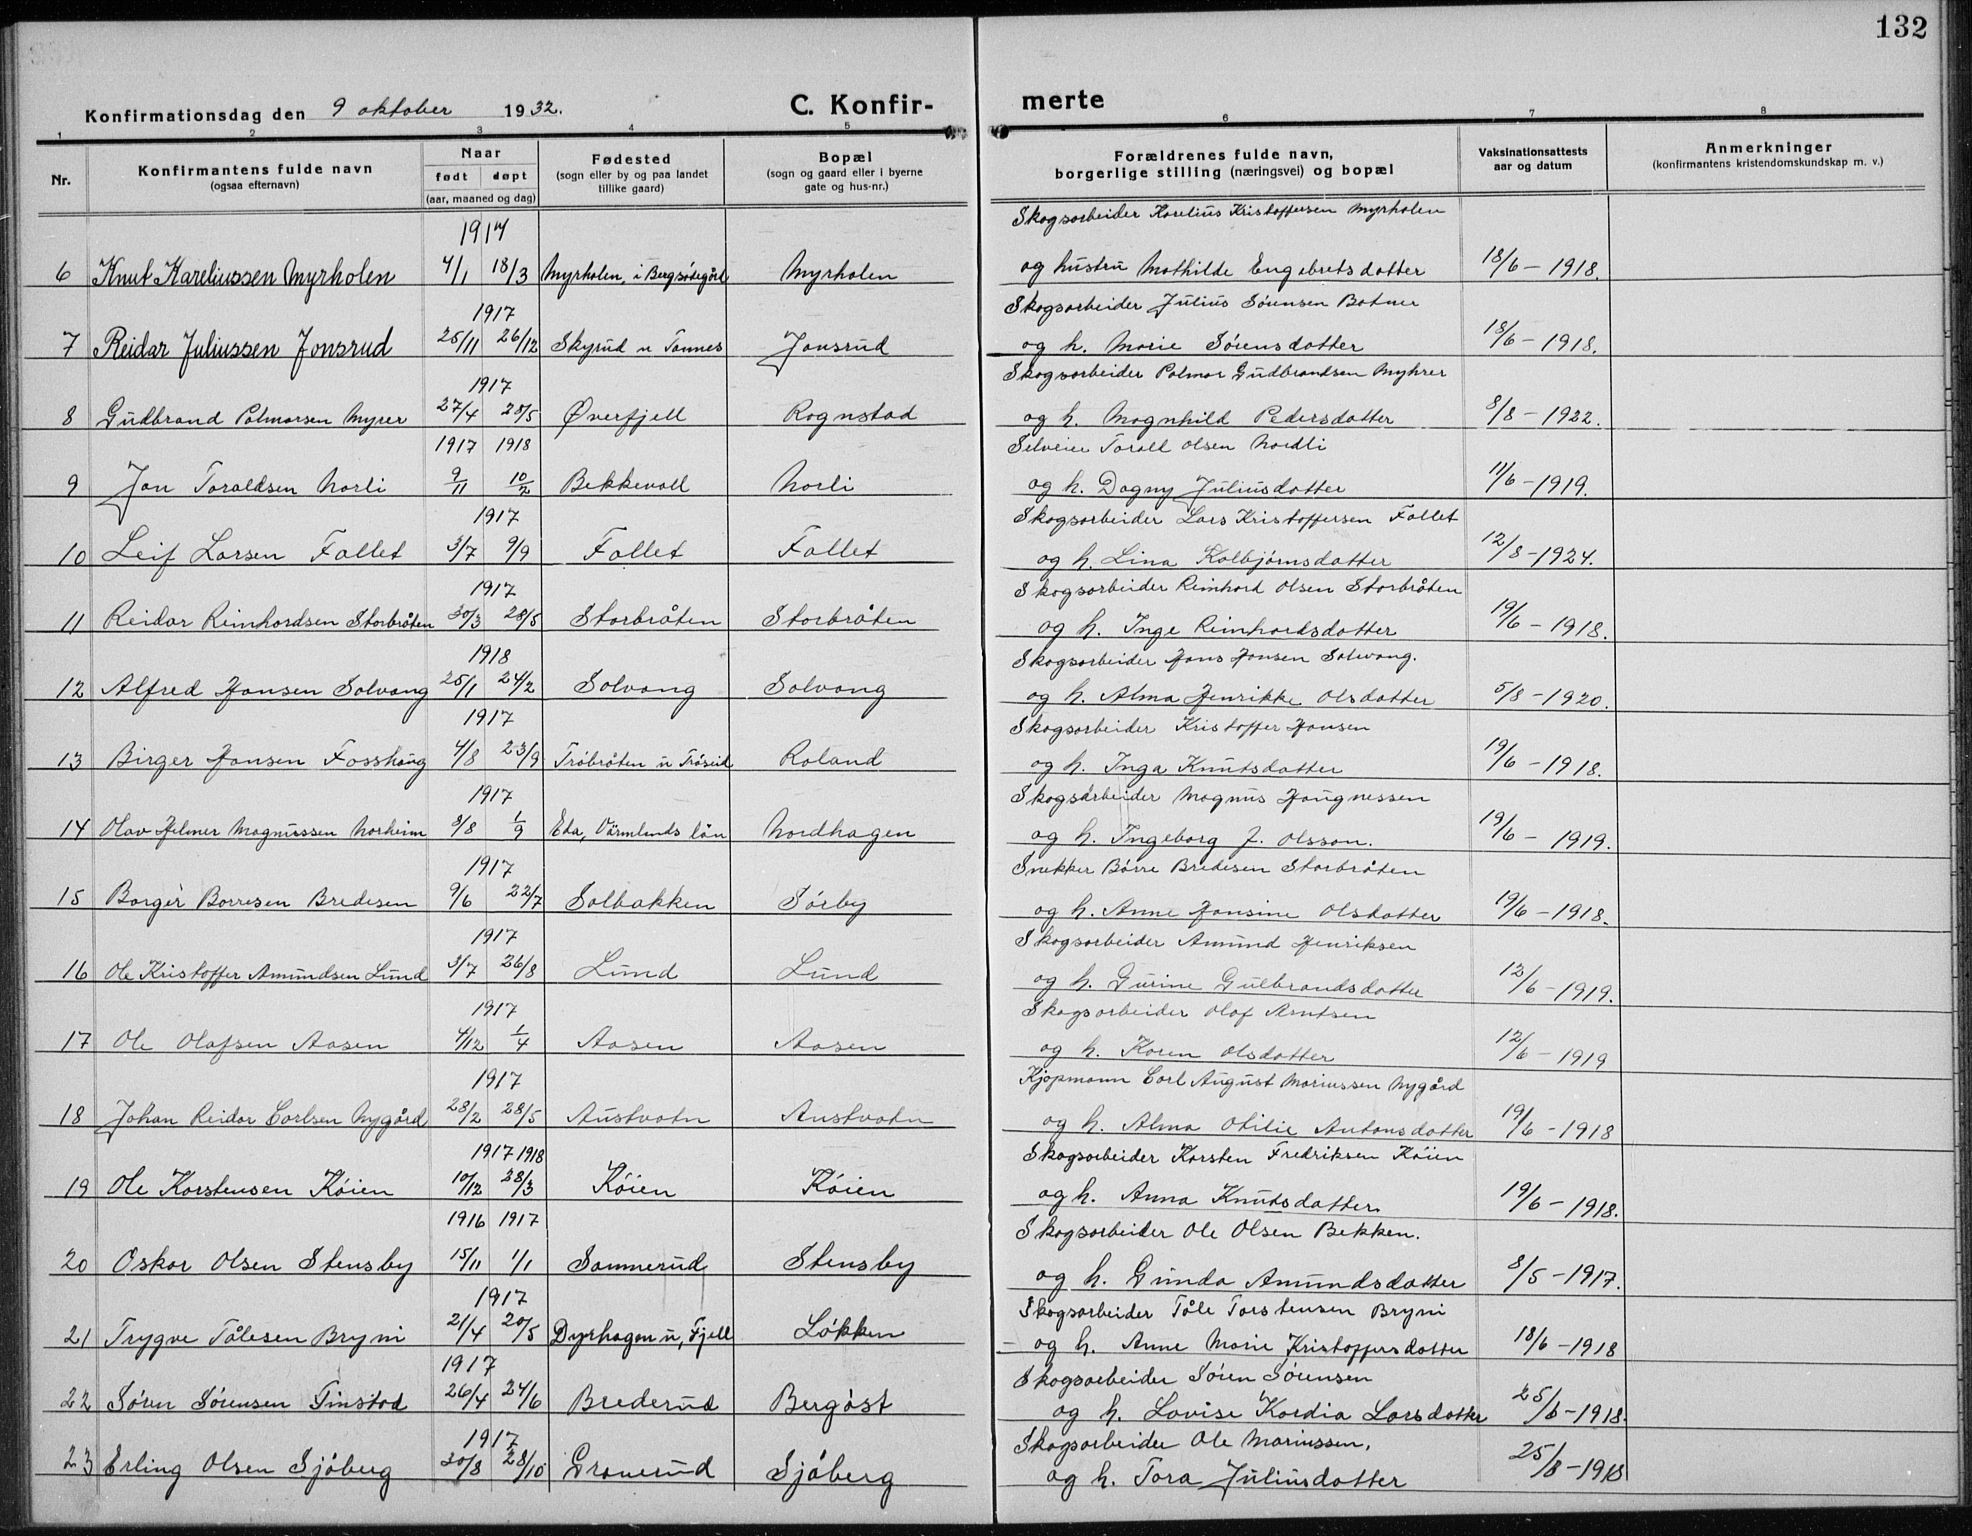 132
Konfirmationsdag den 9 oktober 1932.
C. Konfir-
merte
1 2 3 4 5 6 7 8
Nr.
Konfirmantens fulde navn
(ogsaa efternavn)
Naar
født døpt
(aar, maaned og dag)
Fødested
(sogn eller by og paa landet
tillike gaard)
Bopæl
(sogn og gaard eller i byerne
gate og hus-nr.)
Forældrenes fulde navn,
borgerlige stilling (næringsvei) og bopæl
Vaksinationsattests
aar og datum
Anmerkninger
(konfirmantens kristendomskundskap m. v.)
1917 Skogsarbeider Karelius Kristoffersen Myrholen
6 Knut Kareliussen Myrholen 4/1 18/3 Myrholen, i Bergsötegård Myrholen og hustru Mathilde Engebretsdatter 18/6 - 1918.
1917 Skogsarbeider Julius Sörensen Botner
7 Reidar Juliussen Jonsrud 25/11 26/12 Skyrud u Tannes Jonsrud og h. Marie Sörensdatter 18/6 - 1918.
1917 Skogsarbeider Palmar Gudbrandsen Myhrer
8 Gudbrand Palmarsen Myrer 27/4 28/5 Øverfjell Rognstad og h. Magnhild Pedersdatter 8/8 - 1922.
1917 1918 Selveier Torall Olsen Nordli
9 Jan Toraldsen Norli 9/11 10/2 Bekkevoll Norli og h. Dagny Juliusdatter 11/6 - 1919.
1917 Skogsarbeider Lars Kristoffersen Fallet
10 Leif Larsen Fallet 3/7 9/9 Fallet Fallet og h. Lina Kolbjörnsdatter 12/8 - 1924.
1917 Skogsarbeider Reinhard Olsen Storbråten
11 Reidar Reinhardsen Storbråten 30/3 28/5 Storbråten Storbråten og h. Inge Reinhardsdatter 19/6 - 1918.
1918 Skogsarbeider Hans Hansen Solvang.
12 Alfred Hansen Solvang 25/1 24/2 Solvang Solvang og h. Alma Henrikke Olsdatter 5/8 - 1920.
1917 Skogsarbeider Kristoffer Hansen
13 Birger Hansen Fosshaug 4/8 23/9 Tröbråten u Tröseid Roland og h. Inga Knutsdatter 19/6 - 1918.
1917 Skogsarbeider Magnus Haugnessen
14 Olav Helmer Magnussen Norheim 3/8 1/9 Eda, Värmlands län Nordhagen og h. Ingeborg J. Olsson. 19/6 - 1919.
1917 Snekker Börre Bredesen Storbråten
15 Borger Borresen Bredesen 9/6 22/7 Solbakken Sörby og h. Anne Hansine Olsdatter 19/6 - 1918.
1917 Skogsarbeider Amund Henriksen
16 Ole Kristoffer Amundsen Lund 3/7 26/8 Lund Lund og h. Gurine Gulbrandsdatter 12/6 - 1919.
1917 Skogsarbeider Olaf Arntsen
17 Ole Olafsen Aasen 4/12 1/4 Aasen Aasen og h. Karen Olsdatter 12/6 - 1919
1917 Kjøpmann Carl August Mariussen Nygård
18 Johan Reidar Carlsen Nygård 28/2 28/5 Austvatn Austvatn og h. Alma Otilie Antonsdatter 19/6 - 1918
1917 1918 Skogsarbeider Karsten Fredriksen Köien
19 Ole Karstensen Köien 10/12 28/3 Köien Köien og h. Anna Knutsdatter. 19/6 - 1918.
1916 1917 Skogsarbeider Ole Olsen Bekken.
20 Oskar Olsen Stensby 15/11 1/1 Sannerud Stensby og h. Gunda Amundsdatter 8/5 - 1917.
1917 Skogsarbeider Tåle Torstensen Bryni
21 Trygve Tålesen Bryni 21/4 20/5 Dyrhagen u, Fjell Lökken og h. Anne Marie Kristoffersdatter 18/6 - 1918
1917 Skogsarbeider Sören Sörensen
22 Sören Sörensen Finstad 26/4 24/6 Brederud Bergöst og h. Lovise Kardia Larsdatter 25/6 - 1918.
1917 Skogsarbeider Ole Mariussen,
23 Erling Olsen Sjöberg 30/8 28/10 Granerud Sjöberg og h. Tora Juliusdatter 25/8 - 1918